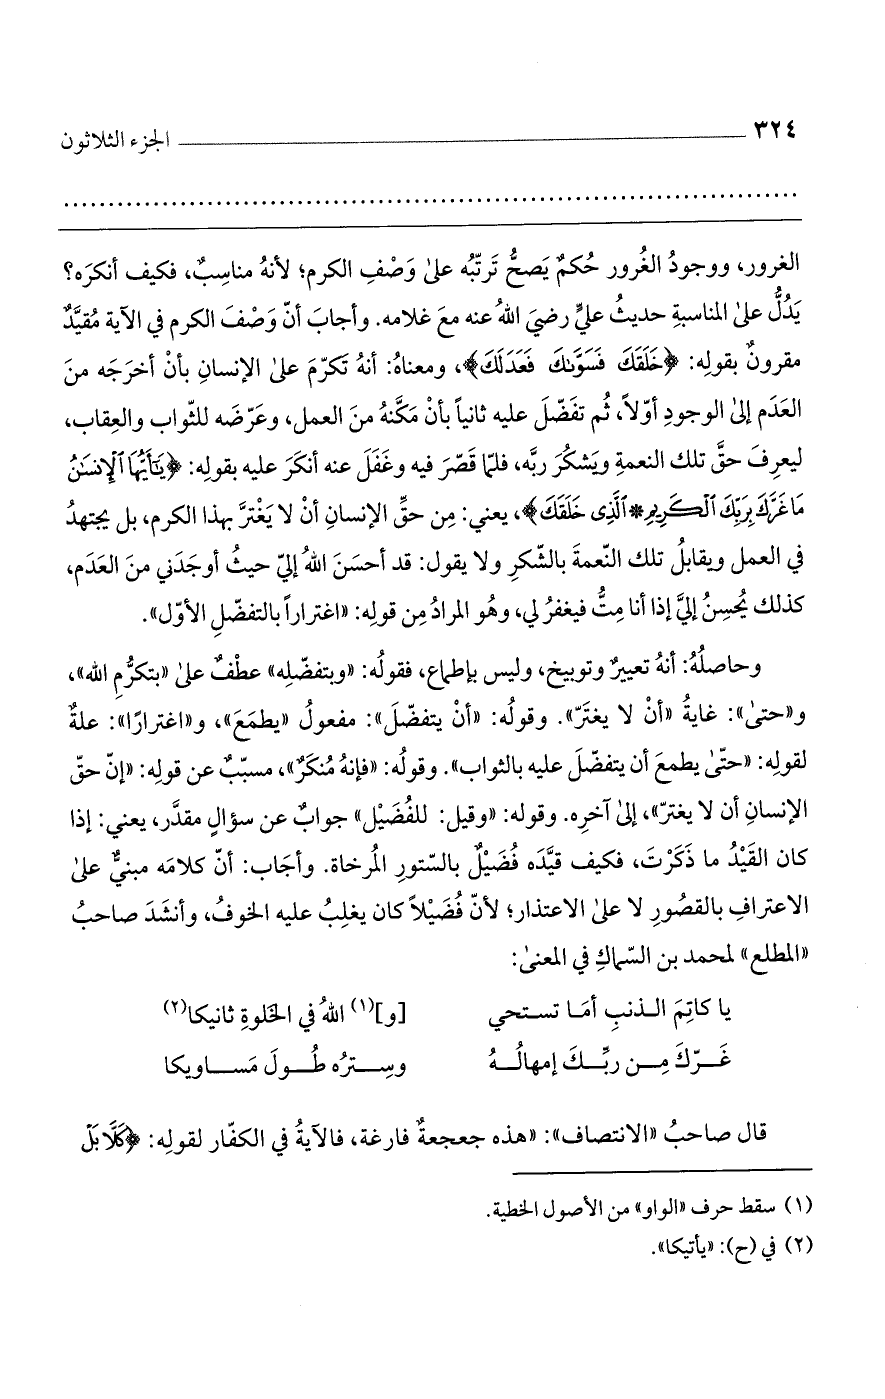 ٣٢٤ الجزء الثلاثون
الغرور، ووجودُ الغُرور حُكمٌ يَصحُّ تَرتّبُه علىٰ وَصْفِ الكرم؛ لأنهُ مناسِبٌ، فكيف أنكرَه؟
يَدُلُّ علىٰ المناسبةِ حديثُ عليٍّ رضيَ اللهُ عنه معَ غلامه. وأجابَ أنّ وَصْفَ الكرم في الآية مُقيَّدٌ
مقرونٌ بقولِه: ﴿خَلَقَكَ فَسَوَّىٰكَ فَعَدَلَكَ﴾، ومعناهُ: أنهُ تَكرّمَ علىٰ الإنسانِ بأنْ أخرَجَه منَ
العَدَم إلىٰ الوجودِ أوّلاً، ثُم تفَضّلَ عليه ثانياً بأنْ مَكَّنهُ منَ العمل، وعَرّضَه للثّواب والعِقاب،
ليعرِفَ حقَّ تلك النعمةِ ويَشكُرَ ربَّه، فلمّا قَصّرَ فيه وغَفَلَ عنه أنكَرَ عليه بقولِه: ﴿يَٰٓأَيُّهَا ٱلْإِنسَٰنُ
مَا غَرَّكَ بِرَبِّكَ ٱلْكَرِيمِ * ٱلَّذِى خَلَقَكَ﴾، يعني: مِن حقِّ الإنسانِ أنْ لا يَغْترَّ بهذا الكرم، بل يجتهدُ
في العمل ويقابلُ تلك النّعمةَ بالشّكرِ ولا يقول: قد أحسَنَ اللهُ إليّ حيثُ أوجَدَني منَ العدَم،
كذلك يُحسِنُ إليَّ إذا أنا مِتُّ فيغفرُ لي، وهُو المرادُ مِن قولِه: «اغتراراً بالتفضّلِ الأوّل».
وحاصلُهُ: أنهُ تعييرٌ وتوبيخ، وليس بإطماع، فقولُه: «وبتفضّلِه» عطْفٌ علىٰ «بتكرُّمِ الله»،
و«حتىٰ»: غايةُ «أنْ لا يغترّ». وقولُه: «أنْ يتفضّلَ»: مفعولُ «يطمَعَ»، و«اغترارًا»: علةٌ
لقولِه: «حتّىٰ يطمعَ أن يتفضّلَ عليه بالثواب». وقولُه: «فإنهُ مُنكَرٌ»، مسبّبٌ عن قولِه: «إنّ حقّ
الإنسانِ أن لا يغترّ»، إلىٰ آخرِه. وقوله: «وقيل: للفُضَيْل» جوابٌ عن سؤالٍ مقدَّر، يعني: إذا
كان القَيْدُ ما ذَكَرْتَ، فكيف قيَّده فُضَيْلٌ بالسّتورِ المُرخاة. وأجَاب: أنّ كلامَه مبنيٌّ علىٰ
الاعترافِ بالقصُورِ لا علىٰ الاعتذار؛ لأنّ فُضَيْلاً كان يغلِبُ عليه الخوفُ، وأنشَدَ صاحبُ
«المطلع» لمحمد بن السّماكِ في المعنىٰ:
يا كاتِمَ الذنبِ أمَا تستحي [و](١) اللهُ في الخَلوةِ ثانيكا(٢)
غَرّكَ مِن ربِّكَ إمهالُهُ وسِترُه طُولَ مَساويكا
قال صاحبُ «الانتصاف»: «هذه جعجعةٌ فارغة، فالآيةُ في الكفّار لقولِه: ﴿كَلَّا بَلْ
(١) سقط حرف «الواو» من الأصول الخطية.
(٢) في (ح): «يأتيكا».